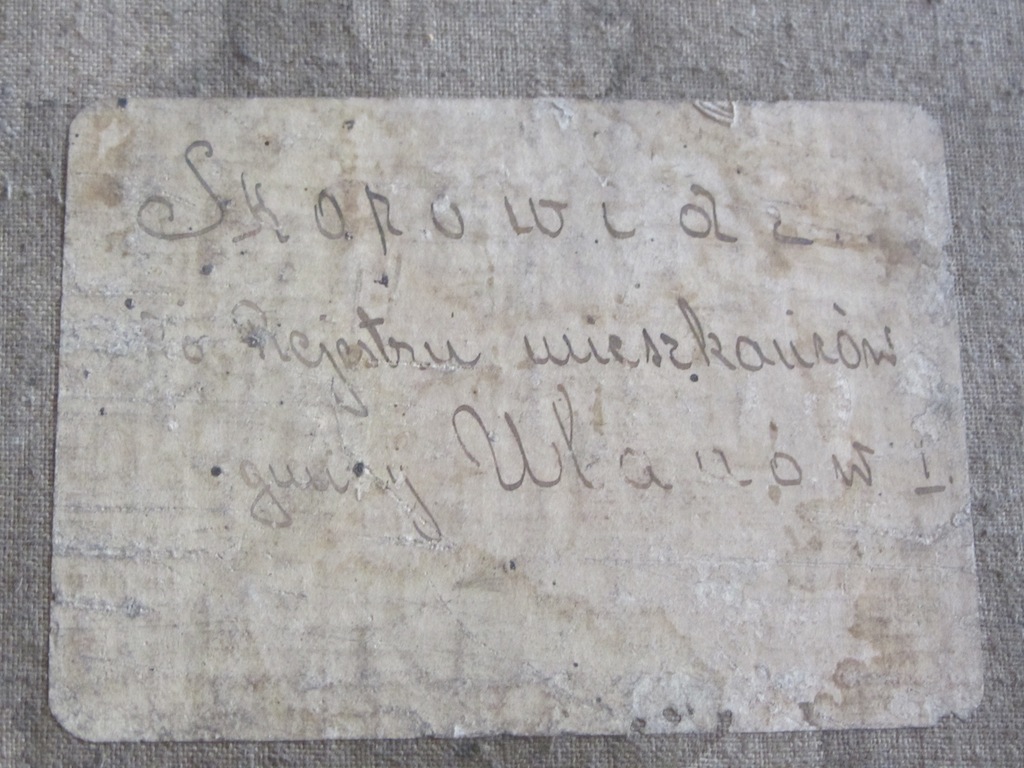 Skorowidz
do Rejestru mieszkańców
gminy Ulanów I.